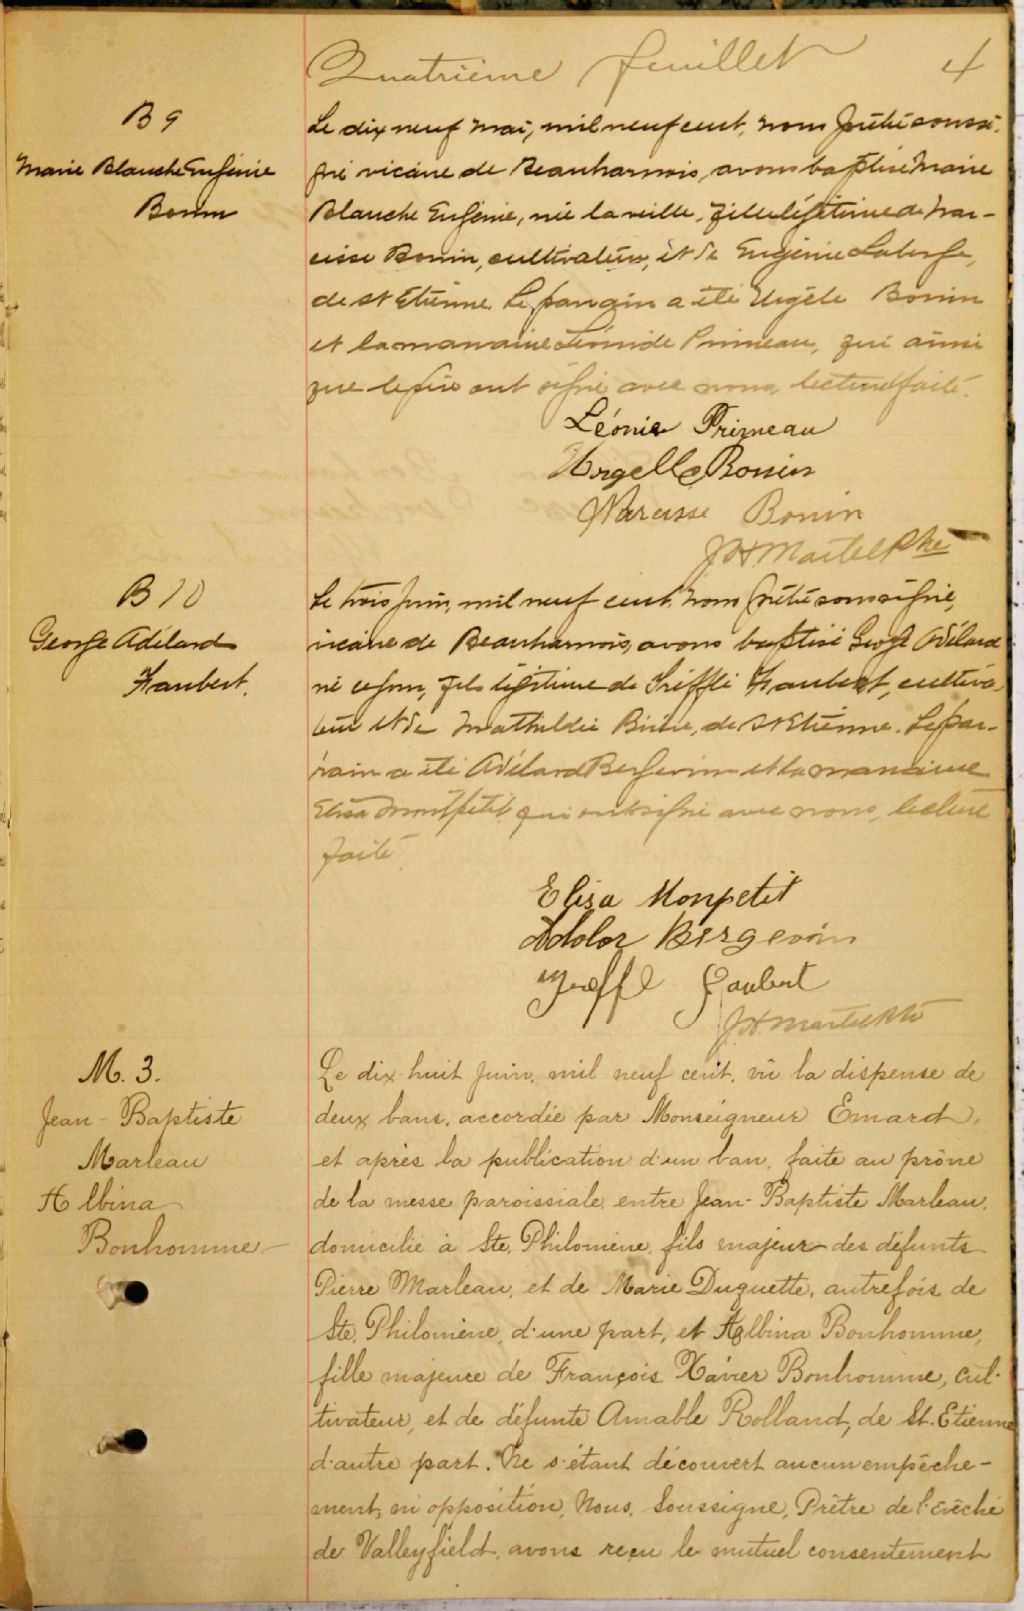 Quatrième feuillet 4
B 9
Marie Blanche Eugénie
Bonin
Le dix neuf mai, mil neuf cent, nous prêtre soussi-
gné vicaire de Beauharnois, avons baptisé Marie
Blanche Eugénie, née la veille, fille légitime de Nar-
cisse Bonin, cultivateur, et de Eugénie Laberge,
de St Etienne. Le parrain a été Urgèle Bonin
et la marraine Léonide Primeau, qui ainsi
que le père ont signé avec nous, lecture faite.
Léonie Primeau
Urgelle Bonin
Narcisse Bonin
J H Martel Ptre
B 10
George Adélard
Faubert.
Le trois juin, mil neuf cent, nous prêtre soussigné,
vicaire de Beauharnois, avons baptisé George Adélard
né ce jour, fils légitime de Trefflé Faubert, cultiva-
teur et de Mathildée, de St Etienne. Le par-
rain a été Adélard Bergevin et la marraine
Elisa Montpetit, qui ont signé avec nous, lecture
faite.
Elisa Monpetit
Adolor Bergevin
Treffle Faubert
J H Martel Ptre
M. 3.
Jean-Baptiste
Marleau
Albina
Bonhomme
Le dix-huit Juin, mil neuf cent, vû la dispense de
deux bans, accordée par Monseigneur Emard,
et après la publication d'un ban, faite au prône
de la messe paroissiale, entre Jean-Baptiste Marleau,
domicilié à Ste. Philomène, fils majeur des défunts
Pierre Marleau, et de Marie Duquette, autrefois de
Ste. Philomène, d'une part, et Albina Bonhomme,
fille majeure de François Xavier Bonhomme, cul-
tivateur, et de défunte Amable Rolland, de St. Etienne
d'autre part. Ne s'étant découvert aucun empêche-
ment, ni opposition, Nous, Soussigné, Prêtre de l'évêché
de Valleyfield, avons reçu le mutuel consentement